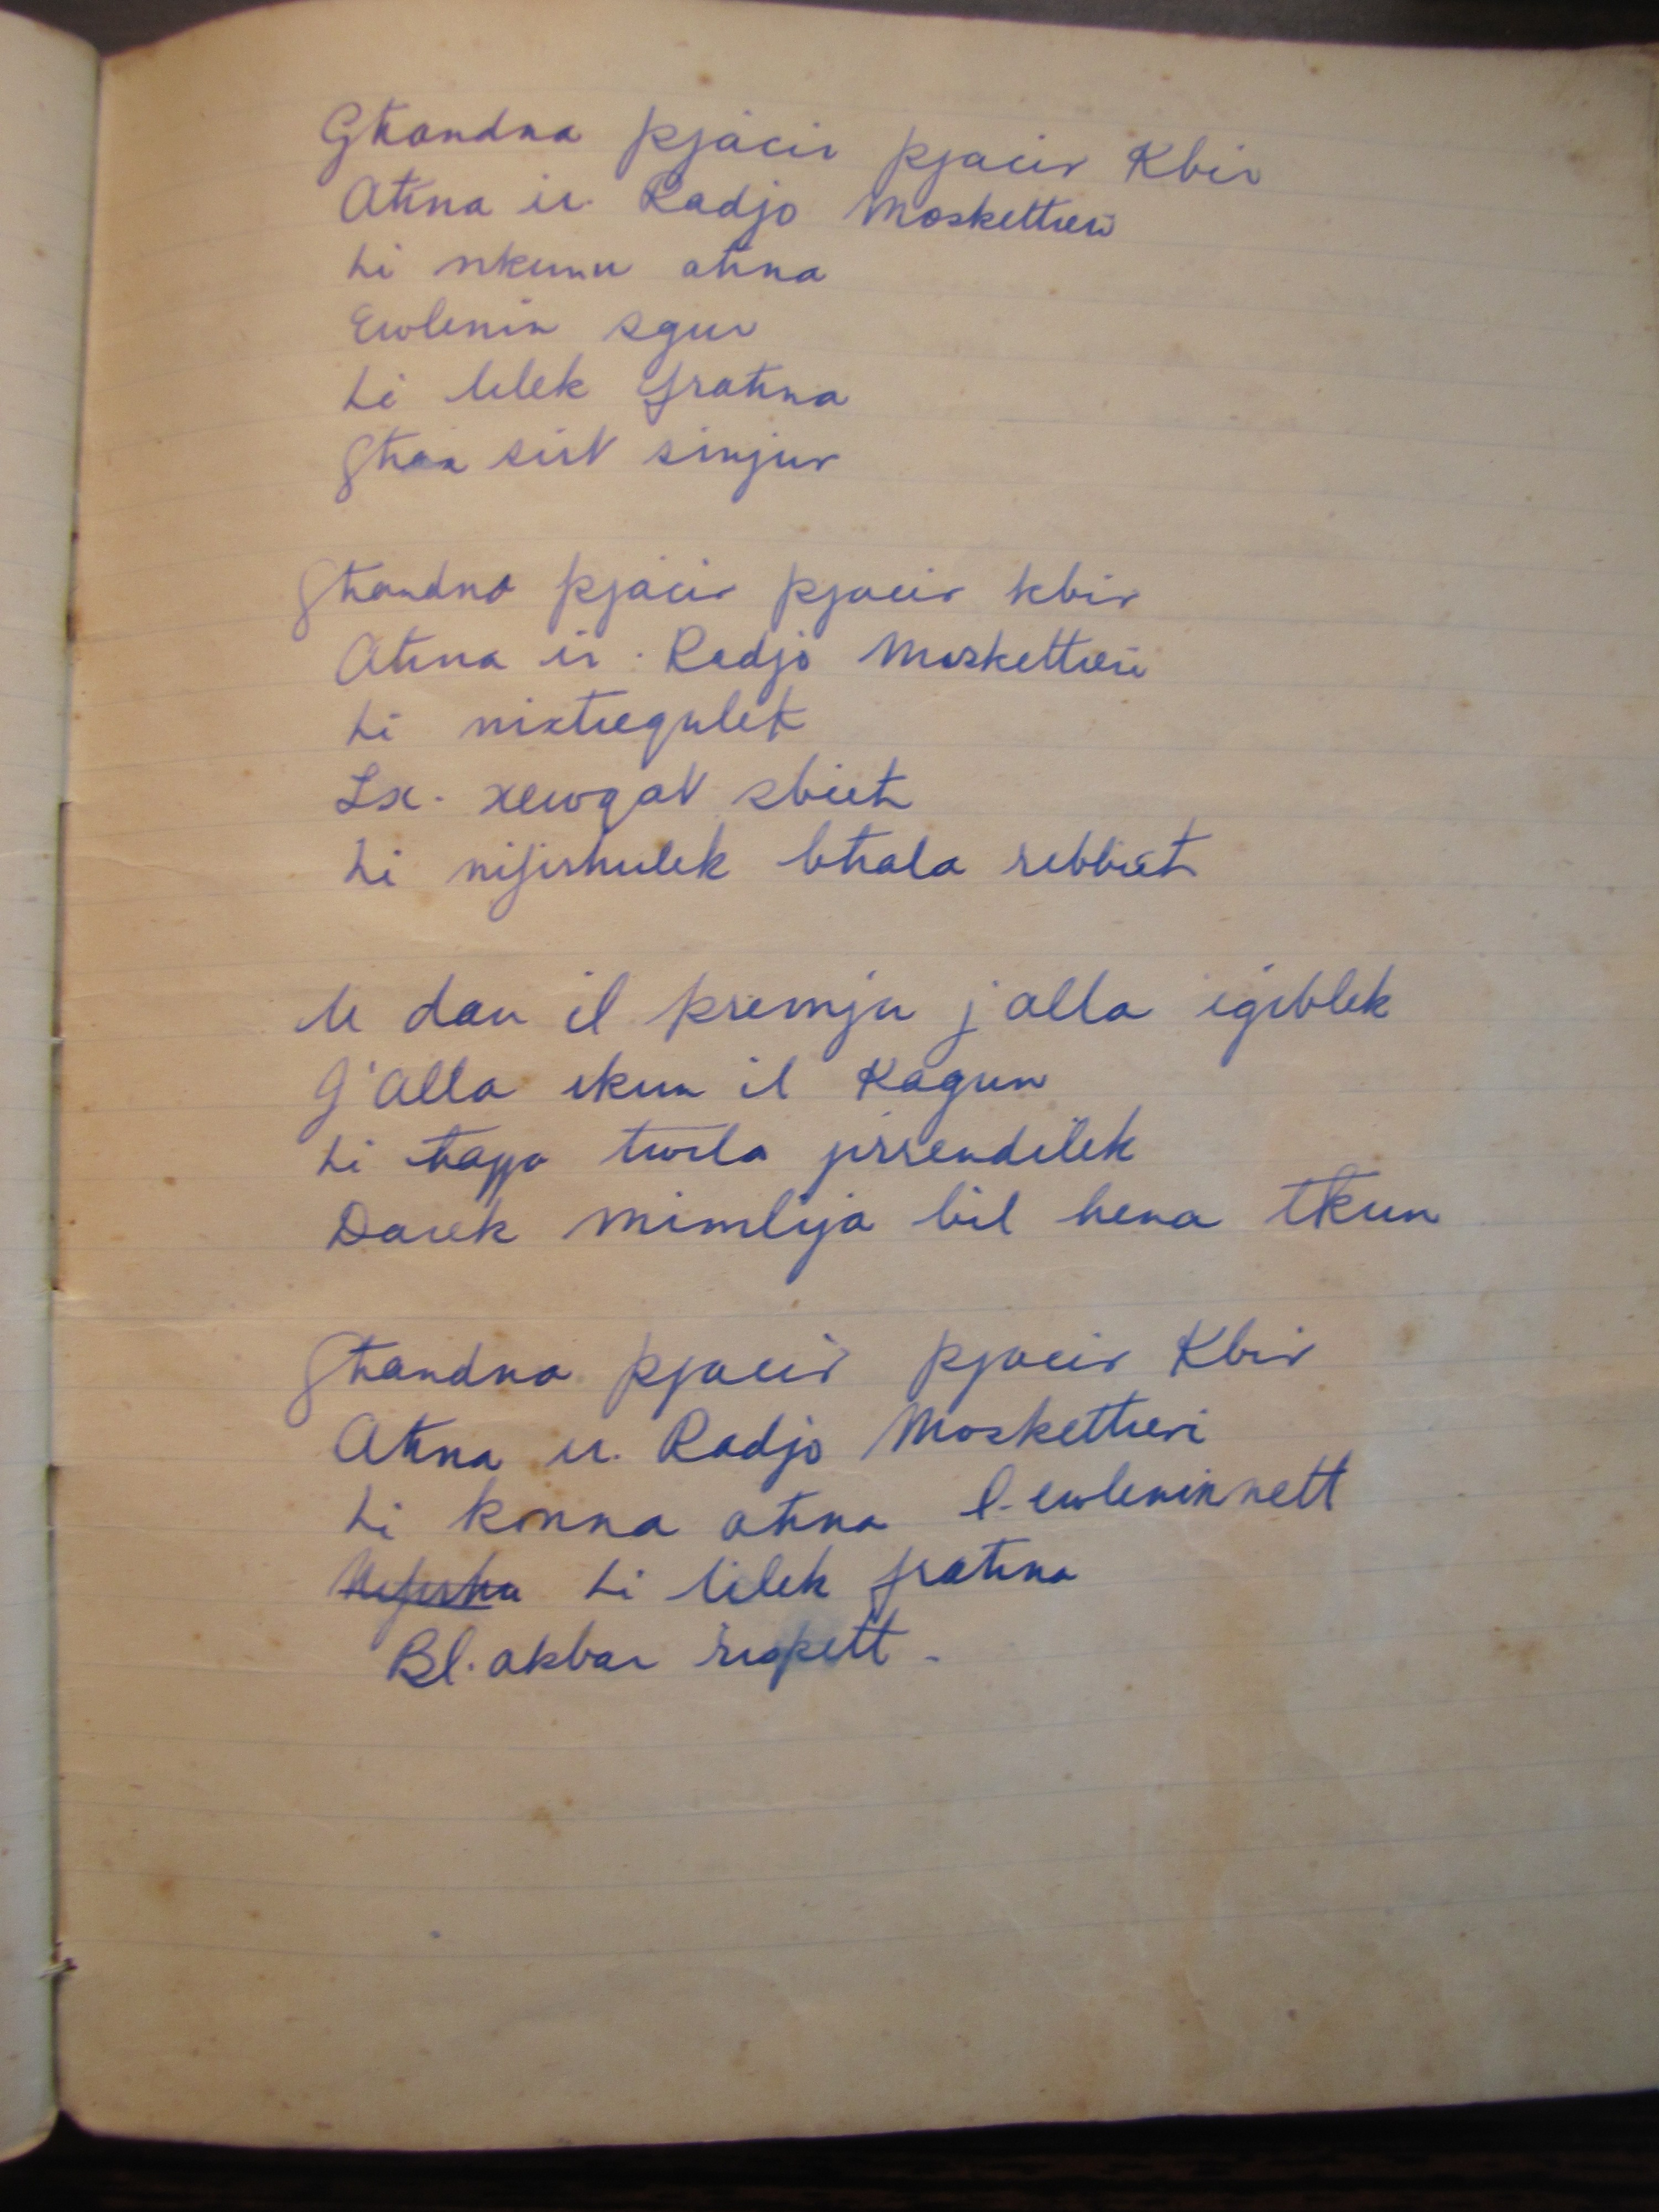 Għandna pjacir pjacir Kbir
Aħna ir. Radjo Moskettieri
Li nkunu aħna
Ewlenin sgur
Li lilek fraħna
Għax sirt sinjur
Għandna pjacir pjacir kbir
Aħna ir. Radjo Moskettieri
Li nixtiequlek
Ix. xewqat sbieħ
Li nifirħulek bħala rebbieħ
U dan il premju j'alla igiblek
J'Alla ikun il Kagun
Li ħajja twila jirrendilek
Darek mimlija bil hena tkun
Għandna pjacir pjacir Kbir
Aħna ir. Radjo Moskettieri
Li konna aħna l-ewlenin nett
Li lilek fraħna
Bl. akbar rispett -